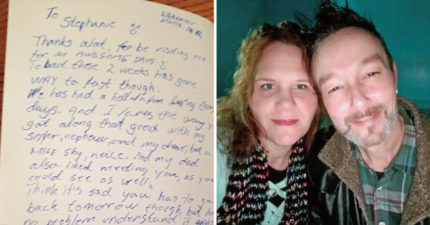 To Stephanie
Thanks alot. for be visiting me
for 14 AWESOME DAYS
To bad these 2 weeks has gone
WAY to fast though.
has had a
days. And I
got along that great with my
sister, nephew, and my dear, but a
little shy, neice. And my dad
also liked meeting you, as you
could see as well.
Think it's sad you has to go
back tomorrow though, but
no problem understand it